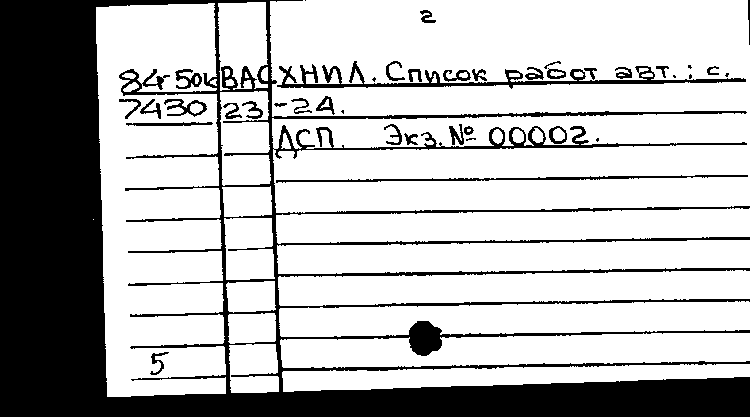 2
84-50к ВАСХНИЛ. Список работ авт.: с.
7430 23-24.
ДСП. Экз. № 00002.
5